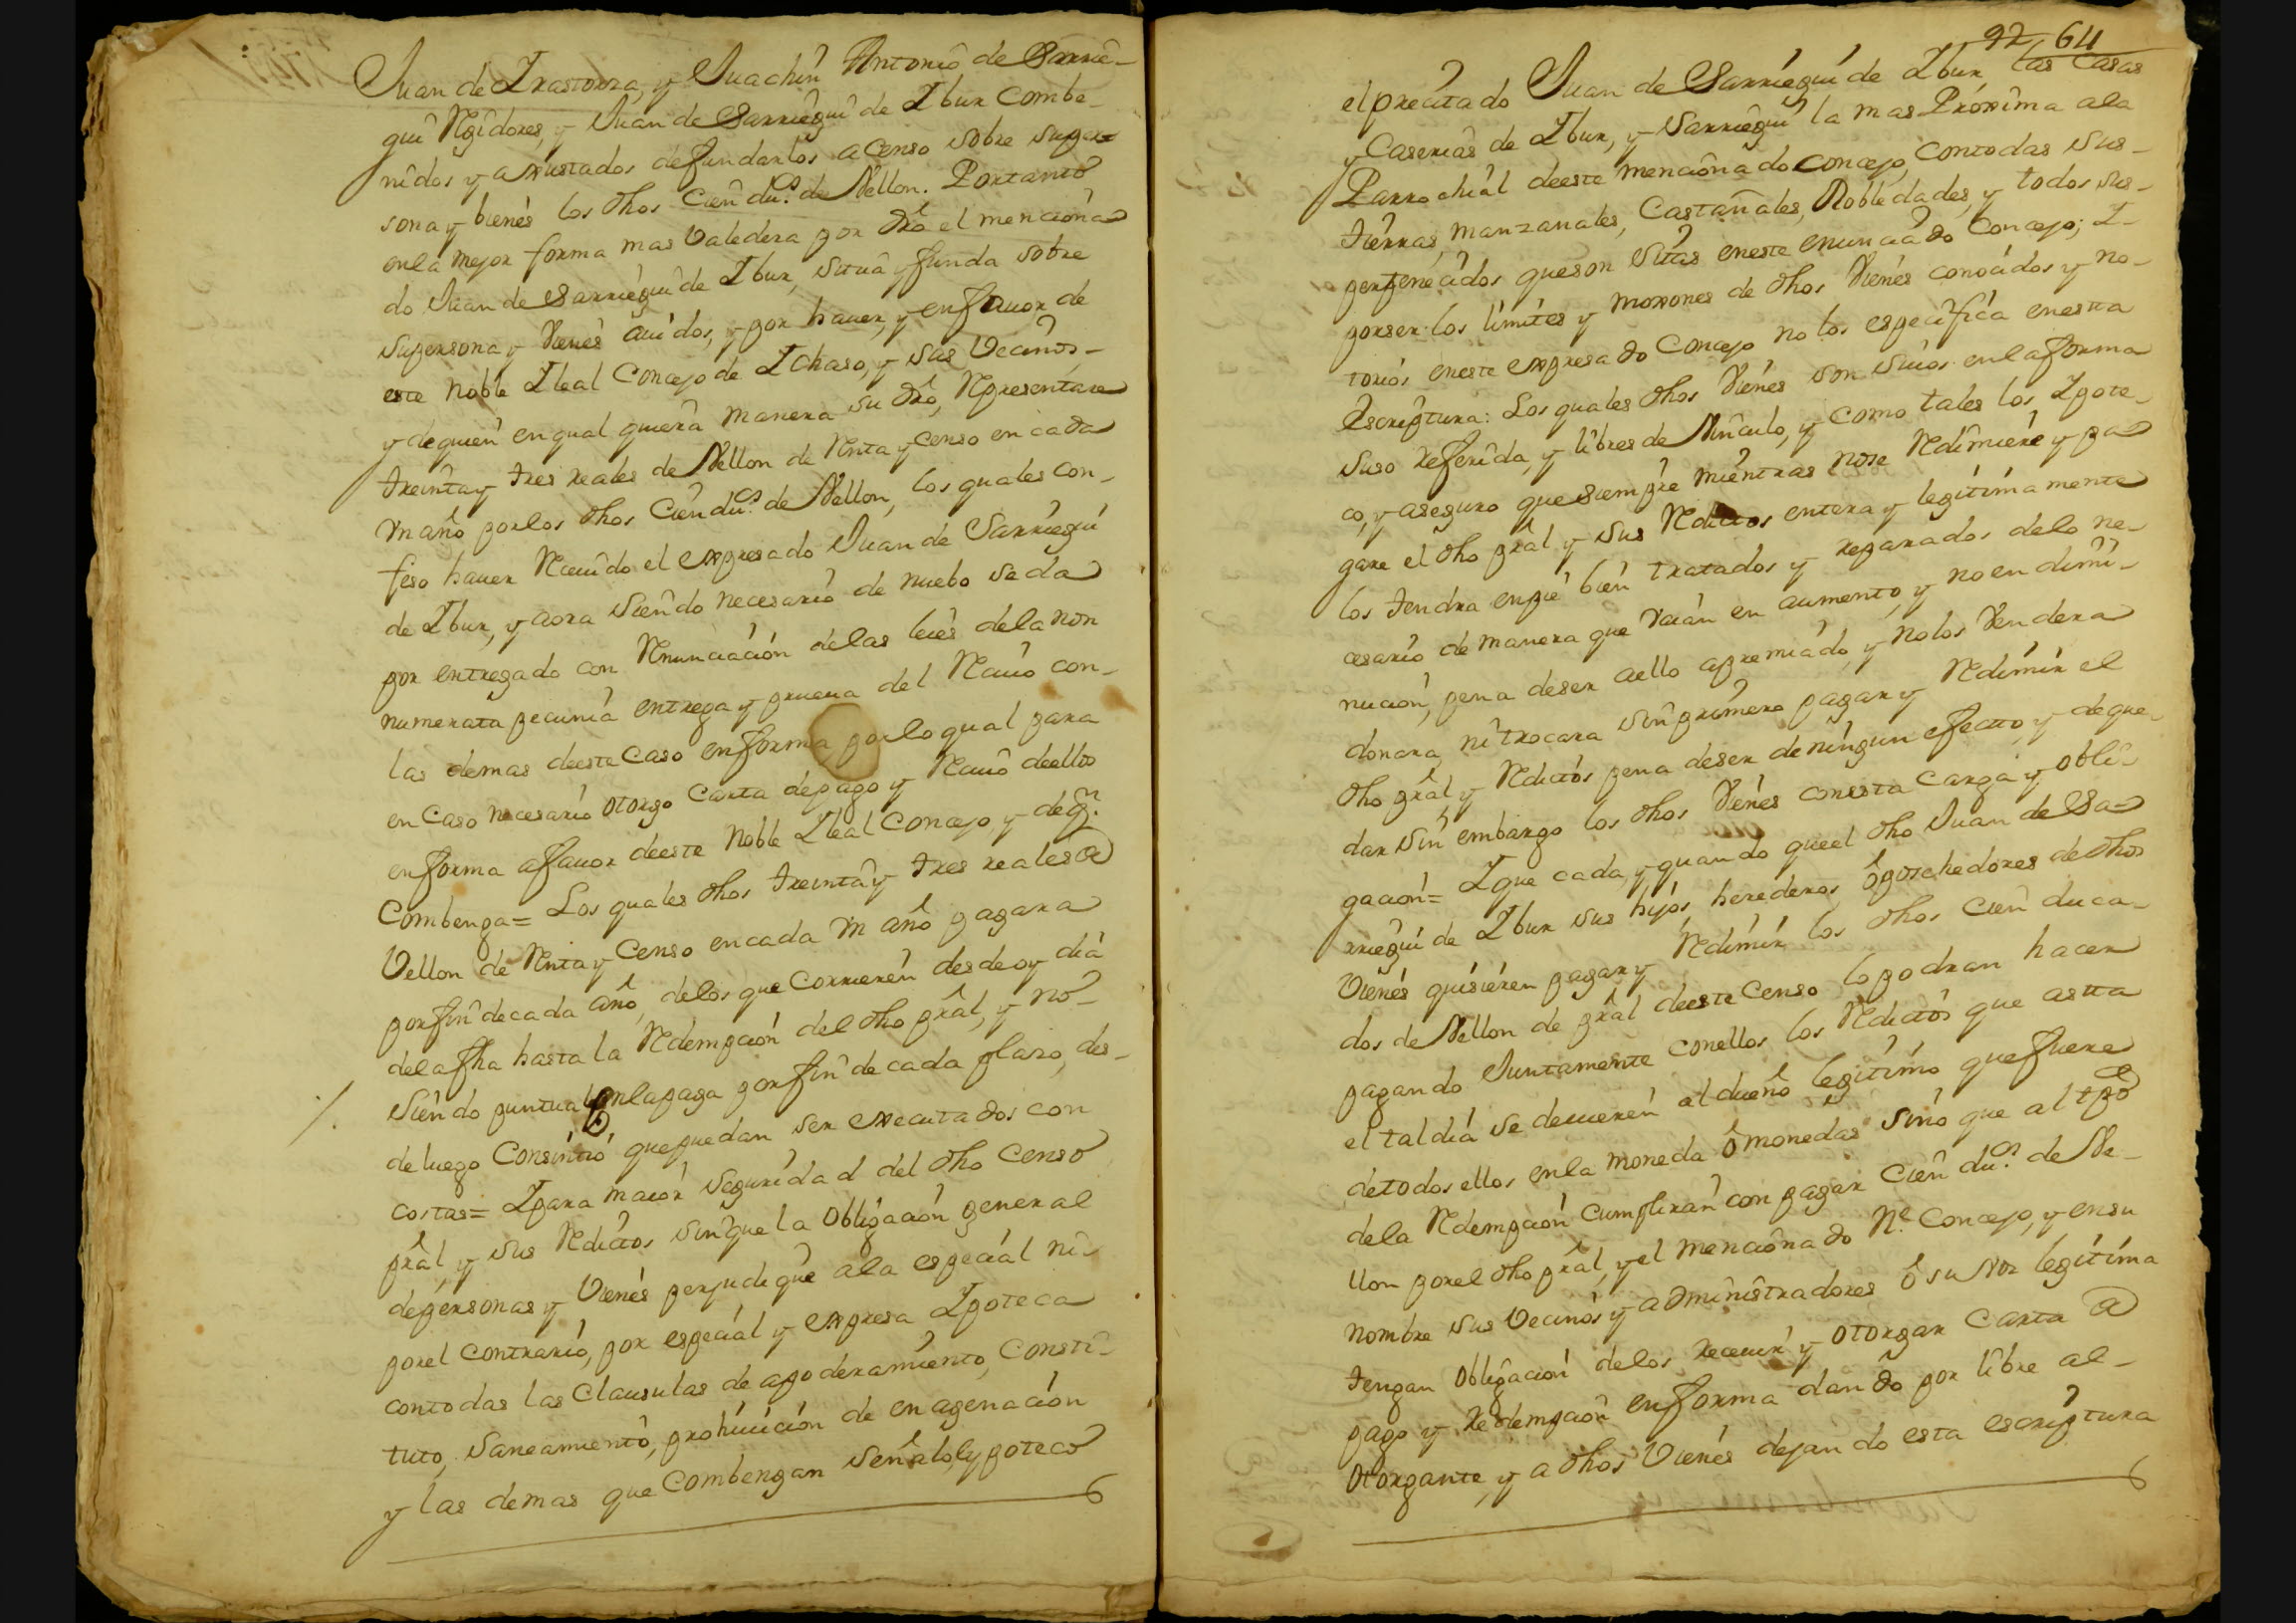 Juan de Irastorza, y Juachin Antonio de Sarrie-
gui Rgidores, y Juan de Sarriegui de Ibur combe-
nidos y ajustados de fundarlos a Censo sobre su per-
sona y bienes los dhos Cien du.s de Vellon. Por tanto
en la mejor forma mas Valedera por dro el menciona-
do Juan de Sarriegui de Ibur, situa y funda sobre
su persona y Vienes auidos, y por hauer, y en fauor de
este Noble I leal Concejo de Ichaso, y sus Vecinos-
y de quien en qual quiera manera su dro, Rpresentare
treinta y tres reales de Vellon de Rnta y Censo en cada
Vn año por los dhos Cien du.s de Vellon, los quales con-
feso hauer Rciuido el expresado Juan de Sarriegui
de Ibur, y aora siendo necesario de nuebo se da
por entregado con Rnunciacion de las leies de la non
numerata pecunia entrega y prueua del Rciuo con-
las demas de este Caso en forma por lo qual para
en Caso necesario otorgo Carta de pago y Rciuo de ello
en forma a fauor de este Noble I leal Concejo, y de q.n
Combenga= Los quales dhos treinta y tres reales @
Vellon de Rnta y Censo en cada Vn año pagara
por fin de cada año, de los que Corrieren desde oy dia
de la fha hasta la Rdempcion del dho pral, y no-
siendo puntual en la paga por fin de cada plaso, des-
de luego Consintio que puedan ser executados con
costas= I para maior seguridad del dho Censo
pral, y sus Rdictos sin que la Obligacion general
de personas y Vienes perjudique a la especial ni-
por el Contrario, por especial y expresa Ipoteca
con todas las Clausulas de apoderamiento, Consti-
tuto, saneamiento, prohiuicion de enagenacion
y las demas que Combengan señalo, lypoteco
92, 64
el precitado Juan de Sarriegui de Ibur las Casas
y Caserias de Ibur, y Sarriegui la mas Proxima a la
Parrochial de este mencionado concejo, con todas sus-
tierras, manzanales, Castañales, Robledades, y todos sus-
pertenecidos que son sitas en este enunciado Concejo; I-
por ser los limites y moxones de dhos Vienes conocidos y no-
torios en este expresado Concejo no los especifica en esta
Escriptura: Los quales dhos Vienes son suios en la forma
suso referida, y libres de Vinculo, y como tales los Ipote-
co, y aseguro que siempre mientras no se Rdimiere y pa-
gare el dho pral y sus Rdictos entera y legitimamente
los tendra en pie bien tratados y reparados de lo ne-
cesario de manera que Vaian en aumento, y no en dimi-
nucion, pena de ser a ello apremiado, y no los Vendera
donara, ni trocara sin primero pagar y Rdimir el
dho pral, y Rdictos pena de ser de ningun efecto, y de que-
dar sin embargo los dhos Vienes con esta Carga y obli-
gacion= I que cada, y quando que el dho Juan de Sa-
rriegui de Ibur sus hijos, herederos, ô posehedores de dhos
Vienes quisieren pagar y Rdimir los dhos Cien duca-
dos de Vellon de pral de este Censo lo podran hacer
pagando Juntamente con ellos los Rdictos que asta
el tal dia se deuieren al dueño legitimo que fuere
de todos ellos en la moneda ô monedas sino que al tpo
de la Rdempcion cumpliran con pagar Cien du.s de Ve-
llon por el dho pral, y el mencionado N.e Concejo, y en su
nombre sus Vecinos y administradores ô su Voz legitima
tengan Obligacion de los receuir y otorgar Carta @
pago y redempcion en forma dando por libre al-
Otorgante, y a dhos Vienes dejando esta escriptura